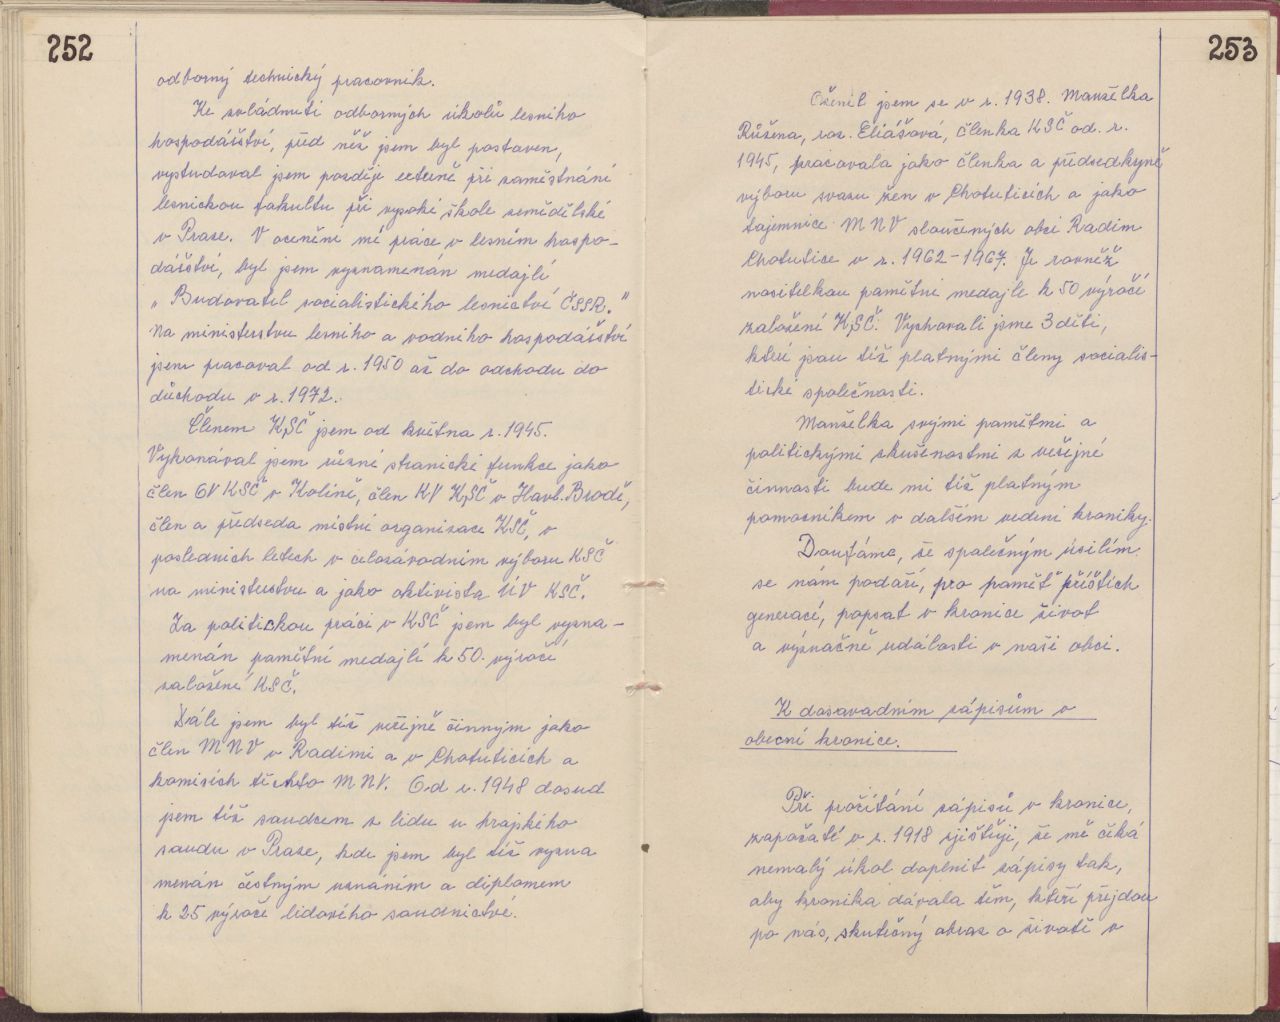 252
odborný technický pracovník.
Ke zvládnutí odborných úkolů lesního
hospodářství, před něž jsem byl postaven,
vystudoval jsem později externě při zaměstnání
lesnickou fakultu při vysoké škole zemědělské
v Praze. V ocenění mé práce v lesním hospo-
dářství, byl jsem vyznamenán medajlí
„Budovatel socialistického lesnictví ČSSR."
Na ministerstvu lesního a vodního hospodářství
jsem pracoval od r. 1950 až do odchodu do
důchodu v r. 1972.
Členem KSČ jsem od května r. 1945.
Vykonával jsem různé stranické funkce jako
člen OV KSČ v Kolíně, člen KV KSČ v Havl. Brodě,
člen a předseda místní organizace KSČ, v
posledních letech v celozávodním výboru KSČ
na ministerstvu a jako aktivista ÚV KSČ.
Za politickou práci v KSČ jsem byl vyzna-
menán pamětní medajlí k 50. výročí
založení KSČ.
Dále jsem byl též veřejně činným jako
člen MNV v Radimi a v Chotuticích a
komisích těchto MNV. Od r. 1948 dosud
jsem též soudcem z lidu u krajského
soudu v Praze, kde jsem byl též vyzna
menán čestným uznáním a diplomem
k 25 výročí lidového soudnictví.
253
Oženil jsem se v r. 1938. Manželka
Růžena, roz. Eliášová, členka KSČ od. r.
1945, pracovala jako členka a předsedkyně
výboru svazu žen v Chotuticích a jako
tajemnice MNV sloučených obcí Radim
Chotutice v r. 1962-1967. Je rovněž
nositelkou pamětní medajle k 50 výročí
založení KSČ. Vychovali jsme 3 děti,
kteří jsou též platnými členy socialis-
tické společnosti.
Manželka svými pamětmi a
politickými zkušenostmi z veřejné
činnosti bude mi též platným
pomocníkem v dalším vedení kroniky.
Doufáme, že společným úsilím
se nám podaří, pro paměť příštích
generací, popsat v kronice život
a význačné události v naší obci.
K dosavadním zápisům v
obecní kronice.
Při pročítání zápisů v kronice,
započaté v r. 1918 zjišťuji, že mě čeká
nemalý úkol doplnit zápisy tak,
aby kronika dávala těm, kteří přejdou
po nás, skutečný obraz o životě v